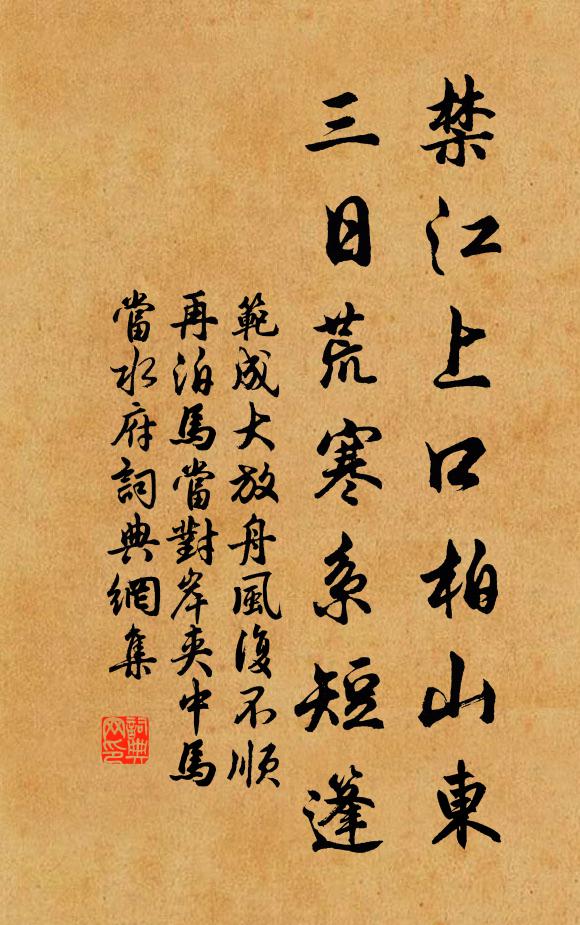 禁江上口柏山東
三日荒寒系短篷
範成大放舟風復不順
再泊馬當對岸夾中馬
當水府詞典網集
詞典网印